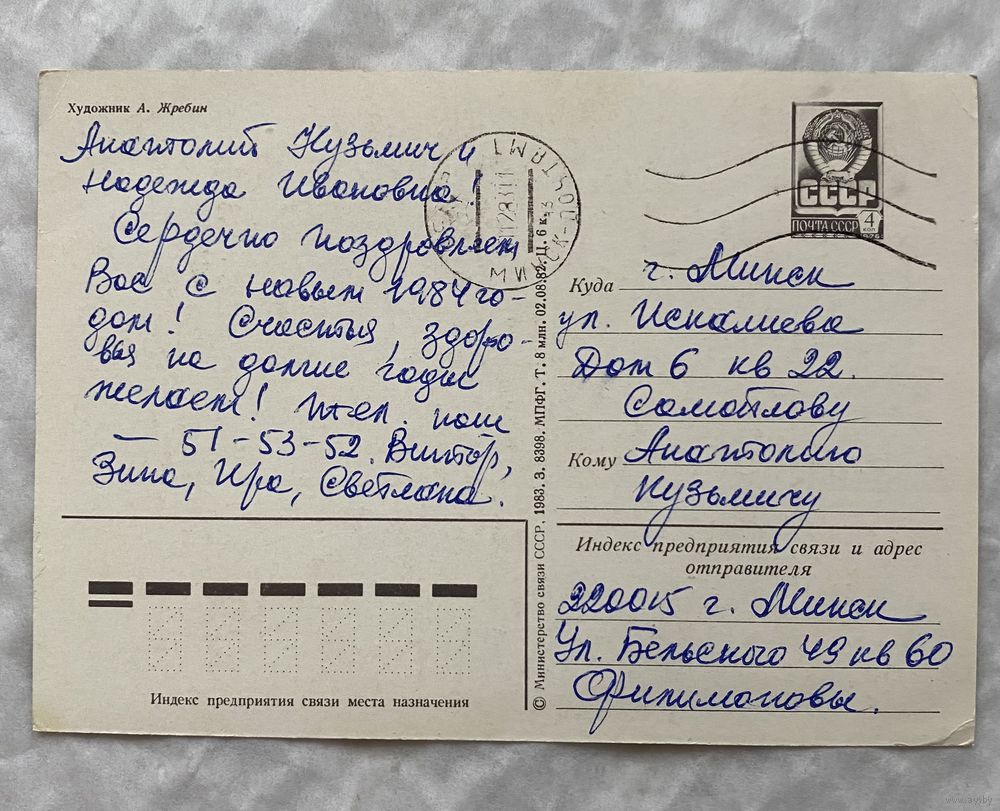 Художник А. Жребин
Анатолий Кузьмич и
Надежда Ивановна!
Сердечно поздровляем
Вас с новым 1984 го-
дом! Счастья, здоро-
вья на долгие годы
желаем! тел. наш
— 51-53-52. Виктор,
Зина, Ира, Светлана.
Индекс предприятия связи места назначения
© Министерство связи СССР. 1983. З. 8398. МПФГ. Т. 8 млн. 02.08.82. Ц. 6 к.
МИНСК ПОЧТАМТ
СССР
ПОЧТА СССР
4
КОП
1976
Куда г. Минск
ул. Искалиева
Дом 6 кв 22.
Самойлову
Кому Анатолию
Кузьмичу
Индекс предприятия связи и адрес
отправителя
220015 г. Минск
Ул. Бельского 49 кв 60
Филимоновы.
www.ay.by